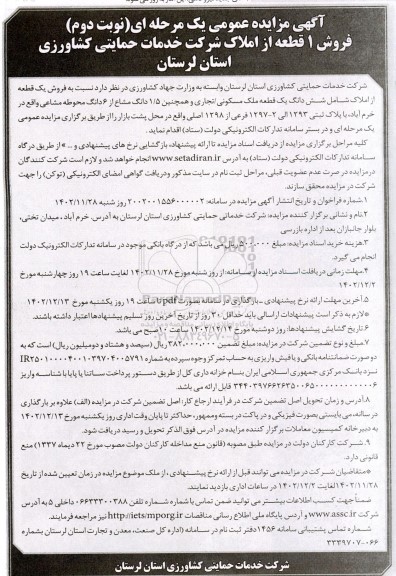 آگهی مزایده عمومی یک مرحله ای(نوبت دوم)
فروش ۱ قطعه از املاک شرکت خدمات حمایتی کشاورزی
استان لرستان
شرکت خدمات حمایتی کشاورزی استان لرستان وابسته به وزارت جهاد کشاورزی در نظر دارد نسبت به فروش یک قطعه
از املاک شامل شش دانگ یک قطعه ملک مسکونی /تجاری و همچنین ۱/۵ دانگ مشاع از ۶دانگ محوطه مشاعی واقع در
خرم آباد، با پلاک ثبتی ۱۲۹۳ الی ۱۲۹۷-۲ فرعی از ۱۲۹۸ اصلی واقع در محل پشت بازار را از طریق برگزاری مزایده عمومی
یک مرحله ای و در بستر سامانه تدارکات الکترونیکی دولت (ستاد) اقدام نماید.
کلیه مراحل برگزاری مزایده از دریافت اسناد مزایده تا ارائه پیشنهاد، بازگشایی نرخ های پیشنهادی و ... » از طریق درگاه
سامانه تدارکات الکترونیکی دولت (ستاد) به آدرس www.setadiran.ir انجام خواهد شد و لازم است شرکت کنندگان
در مزایده در صرت عدم عضویت قبلی، مراحل ثبت نام در سایت مذکور و دریافت گواهی امضای الکترونیکی (توکن) را جهت
شرکت در مزایده محقق سازند.
۱.شماره فراخوان و تاریخ انتشار آگهی مزایده در سامانه: ۲۰۰۲۰۰۱۵۵۶۰۰۰۰۰۲ روز شنبه ۱۴۰۲/۱۱/۲۸
۲.نام و نشانی برگزار کننده مزایده: شرکت خدماتی حمایتی کشاورزی استان لرستان به آدرس. خرم آباد، میدان تختی،
بلوار جانبازان بعد از اداره بازرسی
۳.هزینه خرید اسناد مزایده: مبلغ ۵۰۰.۰۰۰ ریال می باشد که از درگاه بانکی موجود در سامانه تدارکات الکترونیک دولت
انجام می گیرد.
۴.مهلت زمانی دریافت اسناد مزایده از سامانه: از روز شنبه مورخ ۱۴۰۲/۱۱/۲۸ لغایت ساعت ۱۹ روز چهارشنبه مورخ
۱۴۰۲/۱۲/۲
۵.آخرین مهلت ارائه نرخ پیشنهادی ـ بارگذاری در سامانه بصورت pdf تا ساعت ۱۹ روز یکشنبه مورخ ۱۴۰۲/۱۲/۱۳
*لازم به ذکر است پیشنهادات ارسالی باید حداقل ۳۰ روز از تاریخ آخرین روز تسلیم پیشنهادها اعتبار داشته باشند.
۶.تاریخ گشایش پیشنهادها: روز دوشنبه مورخ ۱۴۰۲/۱۲/۱۴ ساعت ۱۰صبح می باشد.
۷.مبلغ و نوع تضمین شرکت در مزایده: مبلغ تضمین ۳۸۲.۰۰۰.۰۰۰ ریال (سیصد و هشتاد و دومیلیون ریال) است که به
دو صورت ضمانتنامه بانکی و یا فیش واریزی به حساب تمرکز وجوه سپرده به شماره IR۲۵۰۱۰۰۰۰۴۰۰۱۰۳۹۷۰۴۰۰۵۷۹۱
نزد بانک مرکزی جمهوری اسلامی ایران بنام خزانه داری کل از طریق دستور پرداخت ساتنا یا پایا با شناسه واریز
قابل ارائه می باشد.
۸.آدرس و زمان تحویل اصل تضمین شرکت در فرآیند ارجاع کار: اصل تضمین شرکت در مزایده (الف) علاوه بر بارگذاری
در سانه، می بایستی بصورت فیزیکی و در پاکت در بسته وممهور، حداکثر تا پایان وقت اداری روز یکشنبه مورخ ۱۴۰۲/۱۲/۱۳
به دبیرخانه کمیسیون معاملات برگزار کننده مزایده در آدرس فوق الذکر تحویل و رسید دریافت شود.
۹.شرکت کارکنان دولت در مزایده طبق مصوبه (قانون منع مداخله کارکنان دولت مصوب مورخ ۲۲ دیماه ۱۳۳۷) منع
قانونی دارد.
*متقاضیان شرکت در مزایده می توانند قبل از ارائه نرخ پیشنهادی، از ملک موضوع مزایده در زمان تعیین شده از تاریخ
۱۴۰۲/۱۱/۲۸ لغایت ۱۴۰۲/۱۲/۲ در ساعات اداری بازدید نمایند.
ضمناً جهت کسب اطلاعات بیشتر می توانید ضمن تماس با شماره شماره تلفن ۰۶۶۳۳۳۰۰۳۸۸ داخلی ۵ به آدرس
www.assc.ir شرکت و آدرس پایگاه ملی اطلاع رسانی مناقصات http://iets/mporg.ir نیز مراجعه فرمایند.
شماره تماس پشتیبانی سامانه ۱۴۵۶ دفتر ثبت نام در سامانه (اداره کل صنعت، معدن و تجارت استان لرستان بشماره
۰۶۶-۳۳۳۹۷۰۷
شرکت خدمات حمایتی کشاورزی استان لرستان